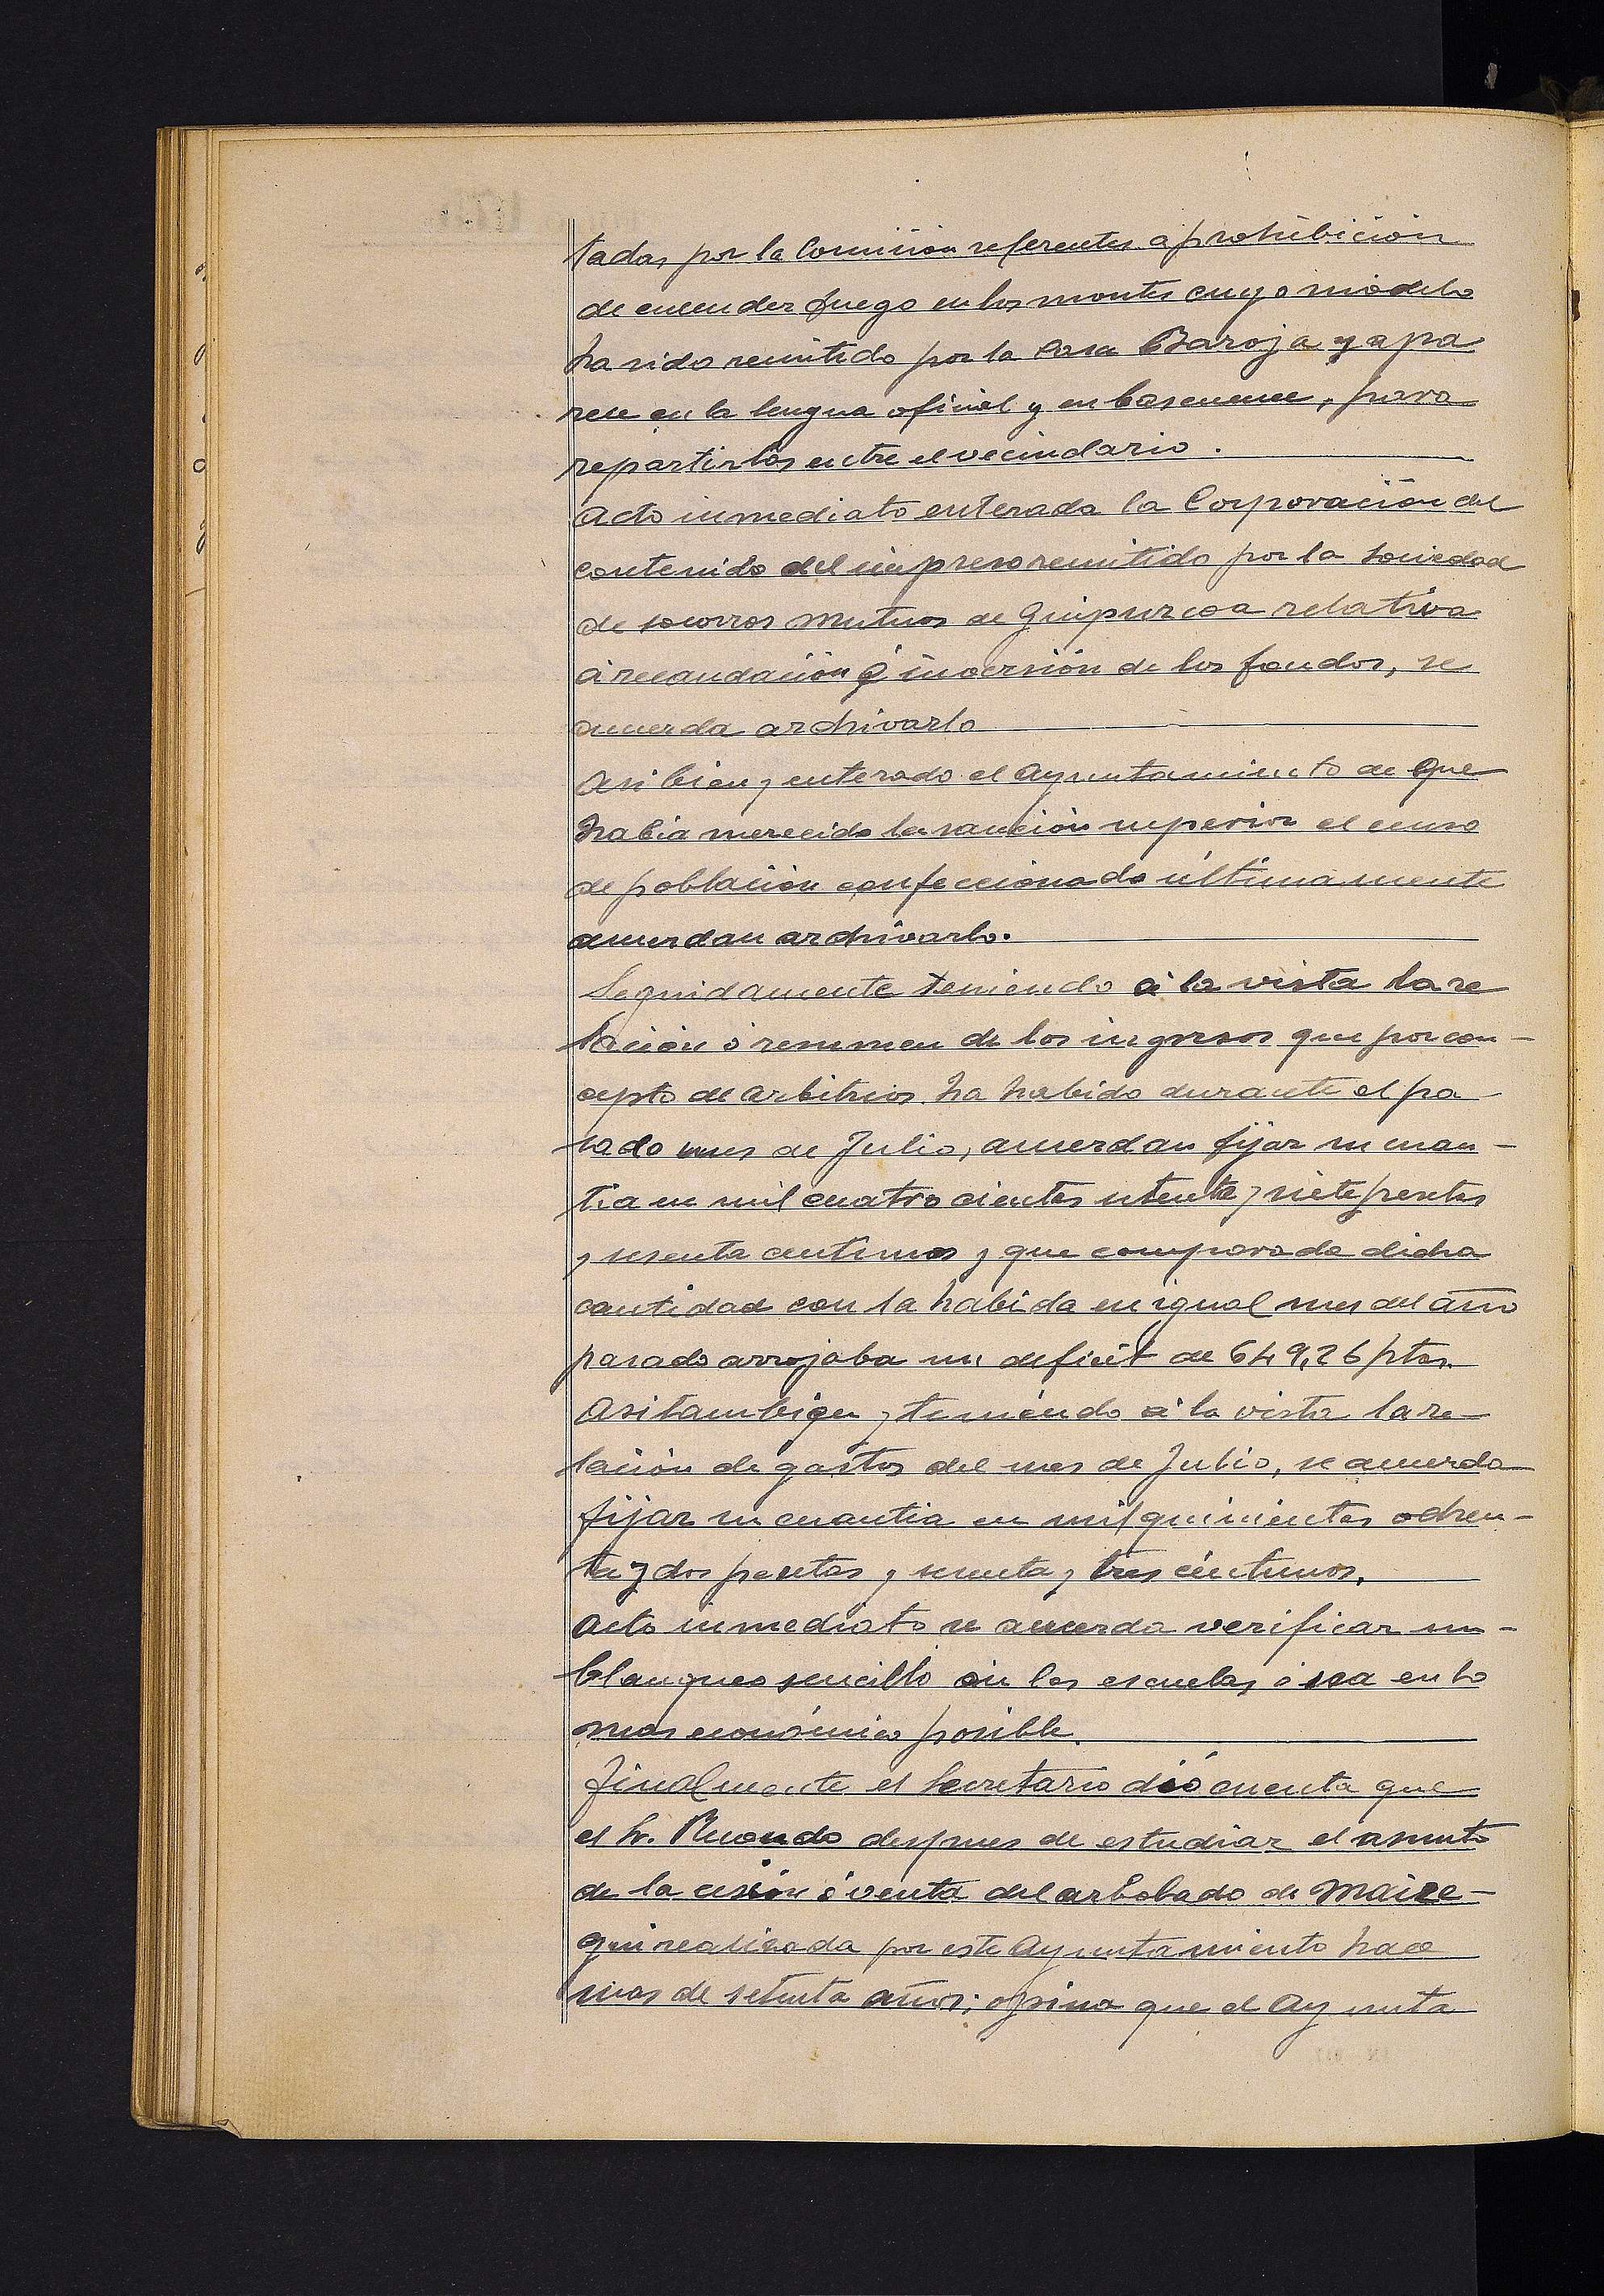 tadas por la Comision referentes a prohibición
de encender fuego en los montes cuyo modelo
ha sido remitido por la Casa Baroja y apa
rece en la lengua oficial y en bascuence, para
repartirlos entre el vecindario.
Acto inmediato enterada la Corporación del
contenido del impreso remitido por la Sociedad
de socorros mutuos de Guipuzcoa relativa
á recaudación é inversión de los fondos, se
acuerda archivarlo
Asi bien y enterado el Ayuntamiento de que
habia merecido la sanción superior el censo
de población confeccionado últimamente
acuerdan archivarlo.
Seguidamente teniendo á la vista la re
lación ó resumen de los ingresos que por con-
cepto de arbitrios ha habido durante el pa
sado mes de Julio, acuerdan fijar su cuan-
tia en mil cuatrocientas setenta y siete pesetas
y sesenta centimos y que comparada dicha
cantidad con la habida en igual mes del año
pasado arrojaba un deficit de 649,26 ptas.
Asi tambien y teniendo á la vista la re-
lación de gastos del mes de Julio, se acuerda
fijar su cuantia en mil quinientas ochen-
ta y dos pesetas y y tres céntimos.
Acto inmediato se acuerda verificar un-
blanqueo sencillo en las escuelas ó sea en lo
mas económico posible.
Finalmente el Secretario dió cuenta que
el Sr. despues de estudiar el asunto
de la cesión ó venta del arbolado de Maize-
gui realizada por este Ayuntamiento hace
mas de setenta años; opina que el Ayunta